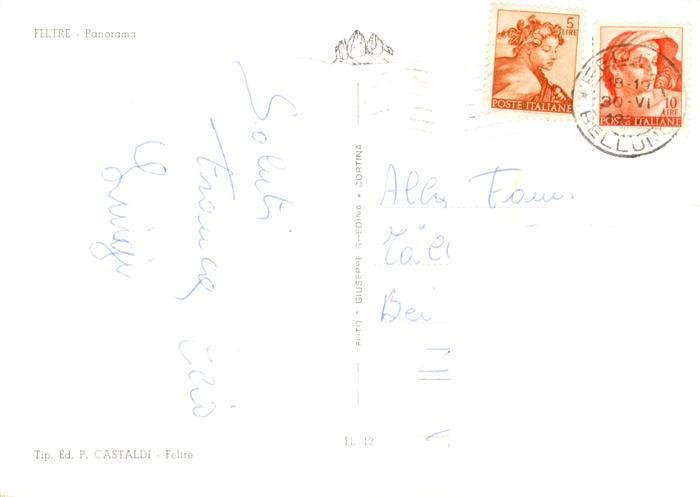 FELTRE - Panorama
5
LIRE
POSTE ITALIANE
10
LIRE
POSTE ITALIANE
18-19
30-VI
BELLUNO
Saluti
Franca
Luigi
FOTO • GIUSEPPE GHEDINA • CORTINA
Alla Fam.
Tip. Ed. P. CASTALDI - Feltre
FL 12